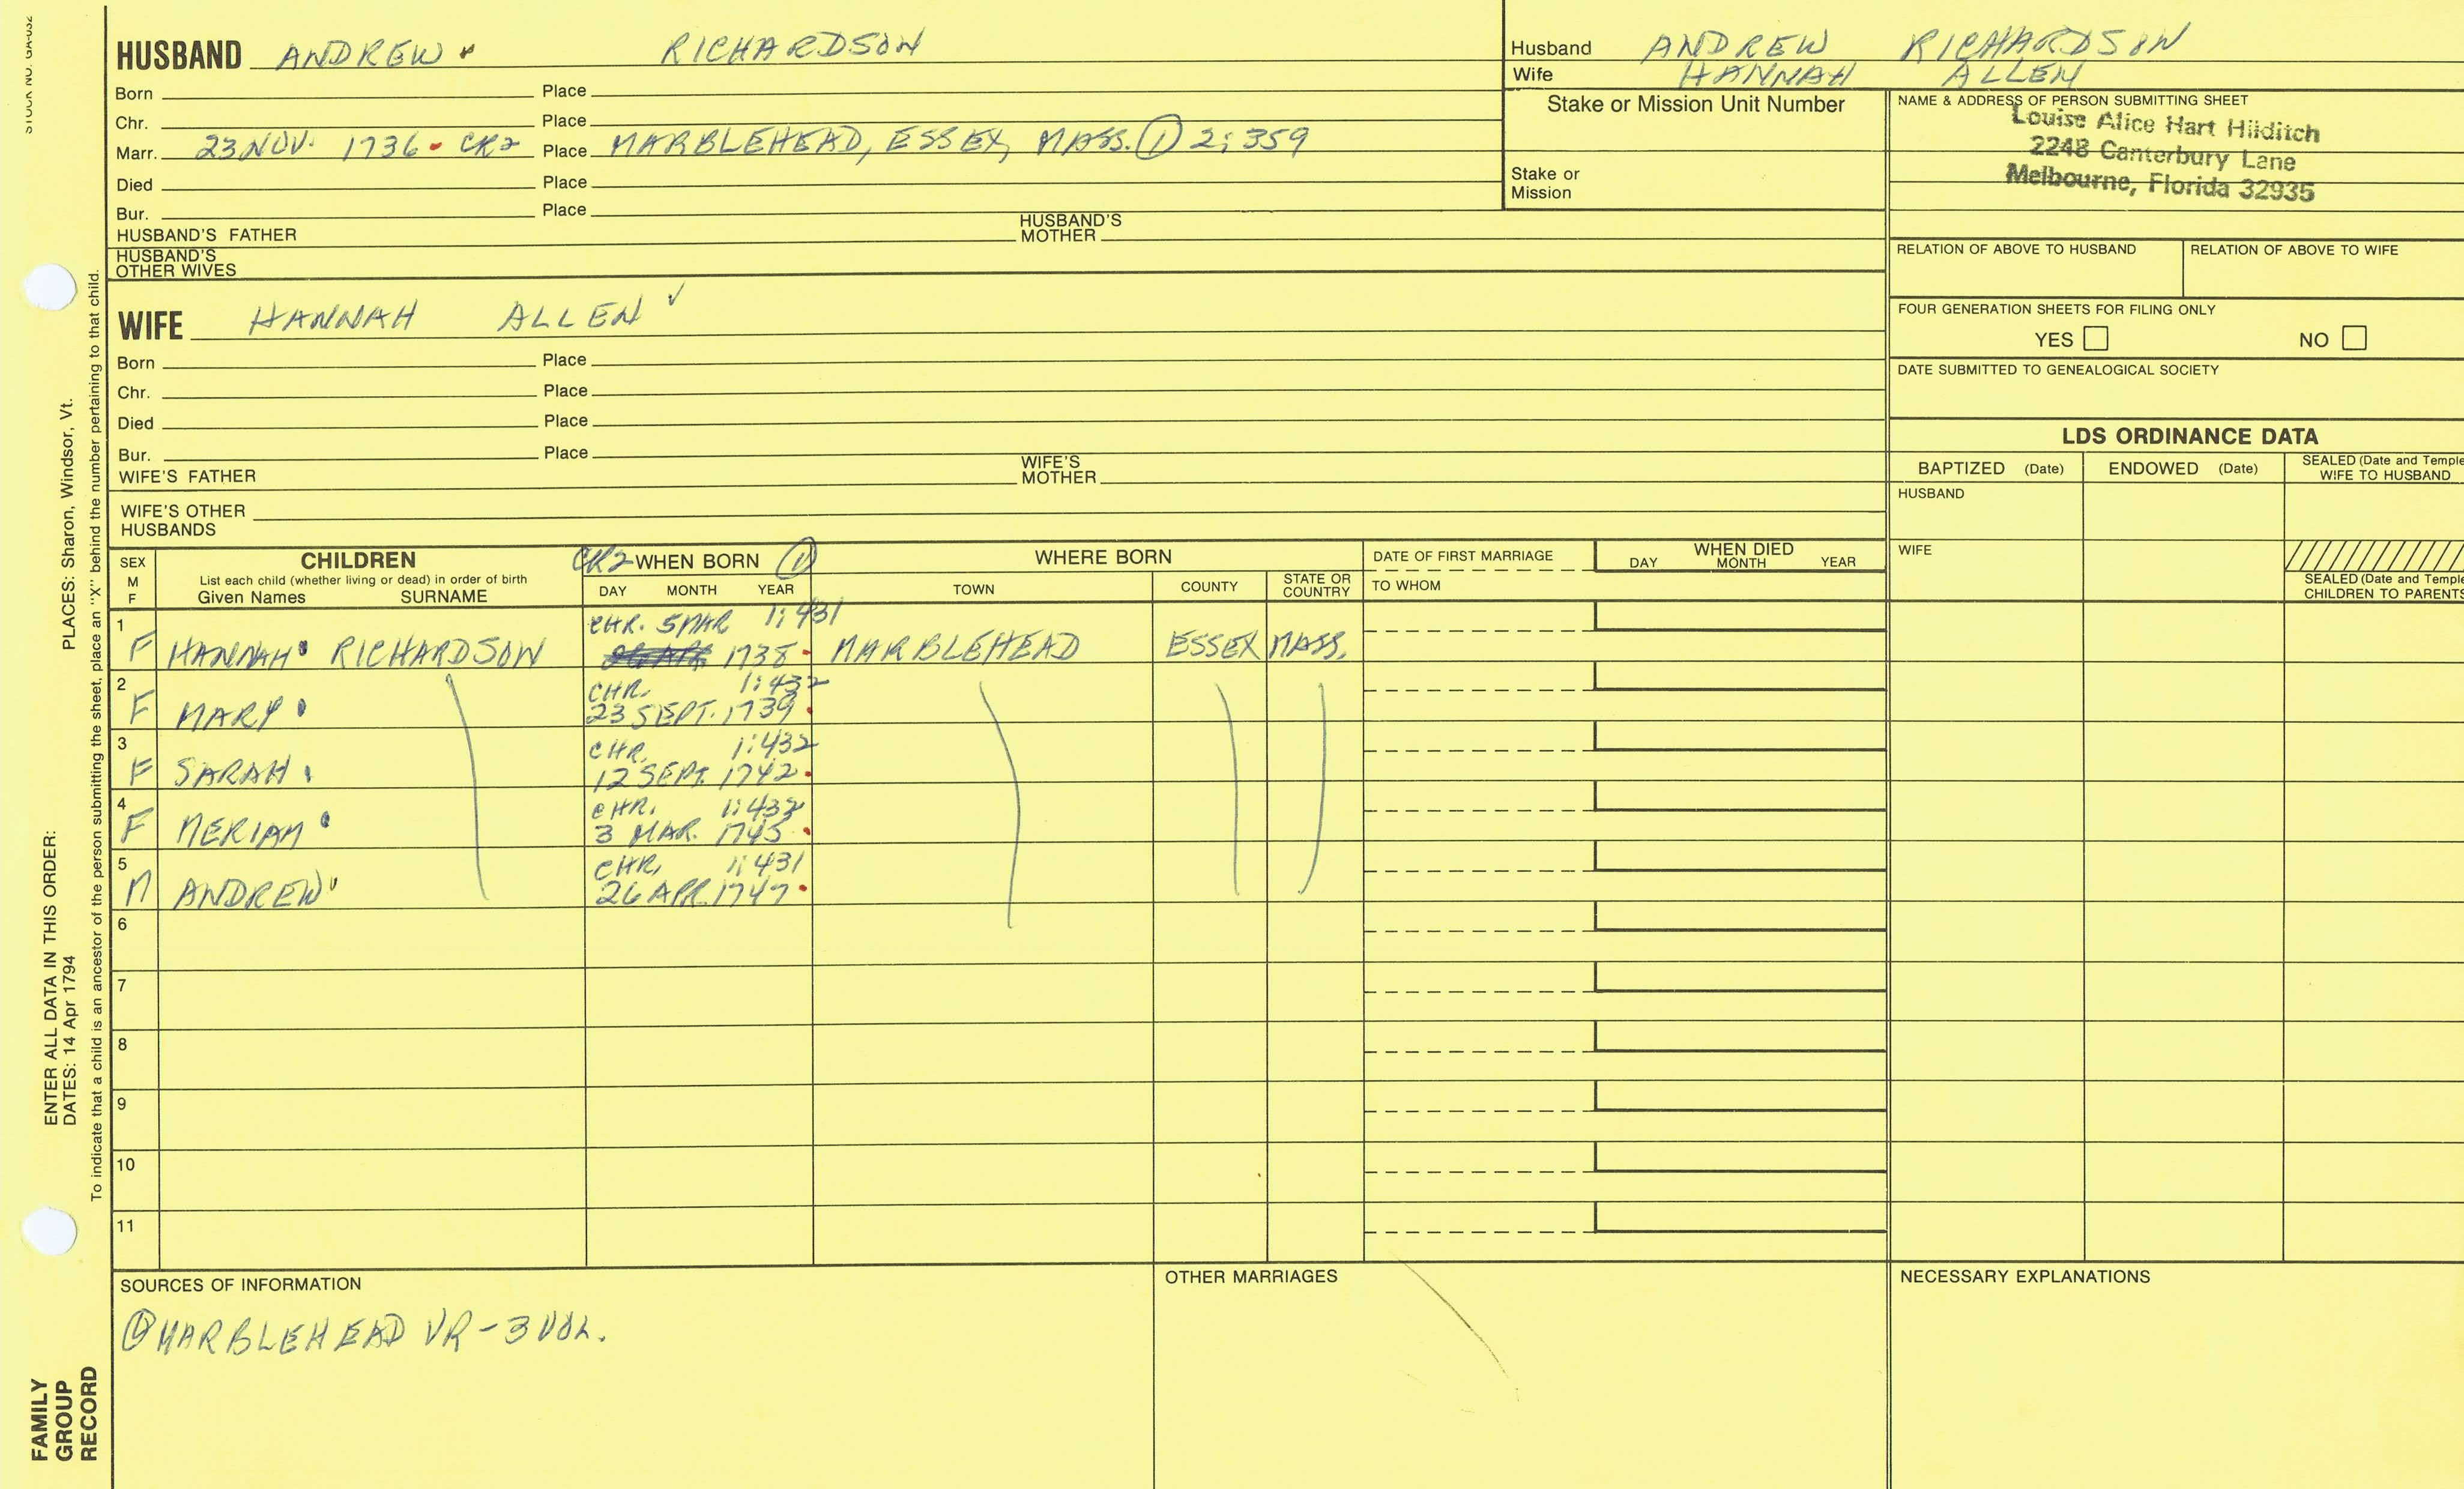 STOCK NO. GA-032
HUSBAND ANDREW RICHARDSON
Born Place
Chr. Place
Marr. 23 NOV. 1736 CR2 Place MARBLEHEAD, ESSEX, MASS. ① 2:359
Died Place
Bur. Place
HUSBAND'S FATHER HUSBAND'S MOTHER
HUSBAND'S OTHER WIVES
Husband ANDREW RICHARDSON
Wife HANNAH ALLEN
Stake or Mission Unit Number
Stake or Mission
NAME & ADDRESS OF PERSON SUBMITTING SHEET
Louise Alice Hart Hilditch
2248 Canterbury Lane
Melbourne, Florida 32935
RELATION OF ABOVE TO HUSBAND RELATION OF ABOVE TO WIFE
FOUR GENERATION SHEETS FOR FILING ONLY
YES NO
DATE SUBMITTED TO GENEALOGICAL SOCIETY
WIFE HANNAH ALLEN ✓
Born Place
Chr. Place
Died Place
Bur. Place
WIFE'S FATHER WIFE'S MOTHER
WIFE'S OTHER HUSBANDS
LDS ORDINANCE DATA
BAPTIZED (Date) ENDOWED (Date) SEALED (Date and Temple
WIFE TO HUSBAND
HUSBAND
WIFE
SEALED (Date and Temple
CHILDREN TO PARENTS
SEX
M
F
CHILDREN
List each child (whether living or dead) in order of birth
Given Names SURNAME
CR2 WHEN BORN ①
DAY MONTH YEAR
WHERE BORN
TOWN COUNTY STATE OR COUNTRY
DATE OF FIRST MARRIAGE
TO WHOM
WHEN DIED
DAY MONTH YEAR
1
CHR. 5 MAR 1:431
F HANNAH RICHARDSON 1738 MARBLEHEAD ESSEX MASS.
2
CHR. 1:432
F MARY 23 SEPT. 1739
3
CHR. 1:432
F SARAH 12 SEPT. 1742
4
CHR. 1:432
F MERIAM 3 MAR. 1745
5
CHR. 1:431
M ANDREW 26 APR. 1747
6
7
8
9
10
11
SOURCES OF INFORMATION
① MARBLEHEAD VR - 3 VOL.
OTHER MARRIAGES
NECESSARY EXPLANATIONS
PLACES: Sharon, Windsor, Vt.
ENTER ALL DATA IN THIS ORDER:
DATES: 14 Apr 1794
To indicate that a child is an ancestor of the person submitting the sheet, place an "X" behind the number pertaining to that child.
FAMILY
GROUP
RECORD